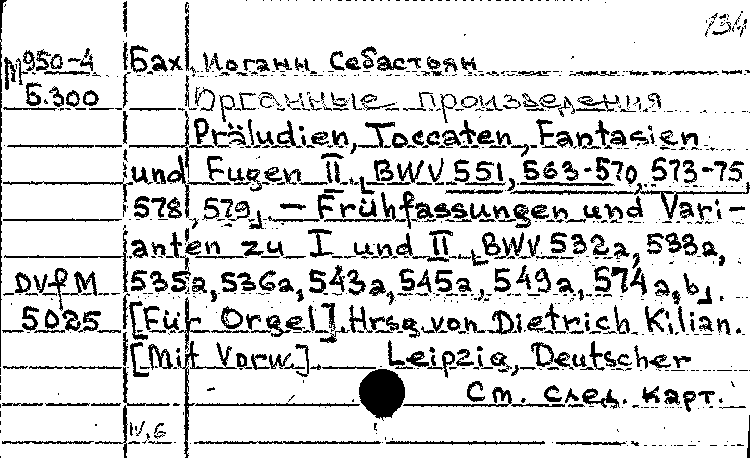 134
М950-4 Бах, Иоганн Себастьян
Б.300 Органные произведения
Präludien, Toccaten, Fantasien
und Fugen II. [BWV 551, 563-570, 573-75,
578, 579]. — Frühfassungen und Vari-
anten zu I und II [BWV 532a, 533a,
DVfM 535a, 536a, 543a, 545a, 549a, 574a, b].
5025 [Für Orgel]. Hrsg. von Dietrich Kilian.
[Mit Vorw.]. Leipzig, Deutscher
См. след. карт.
IV, 6